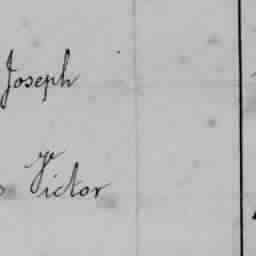 Joseph
Victor